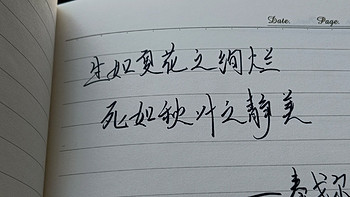 Date. Page.
生如夏花之绚烂
死如秋叶之静美
——泰戈尔